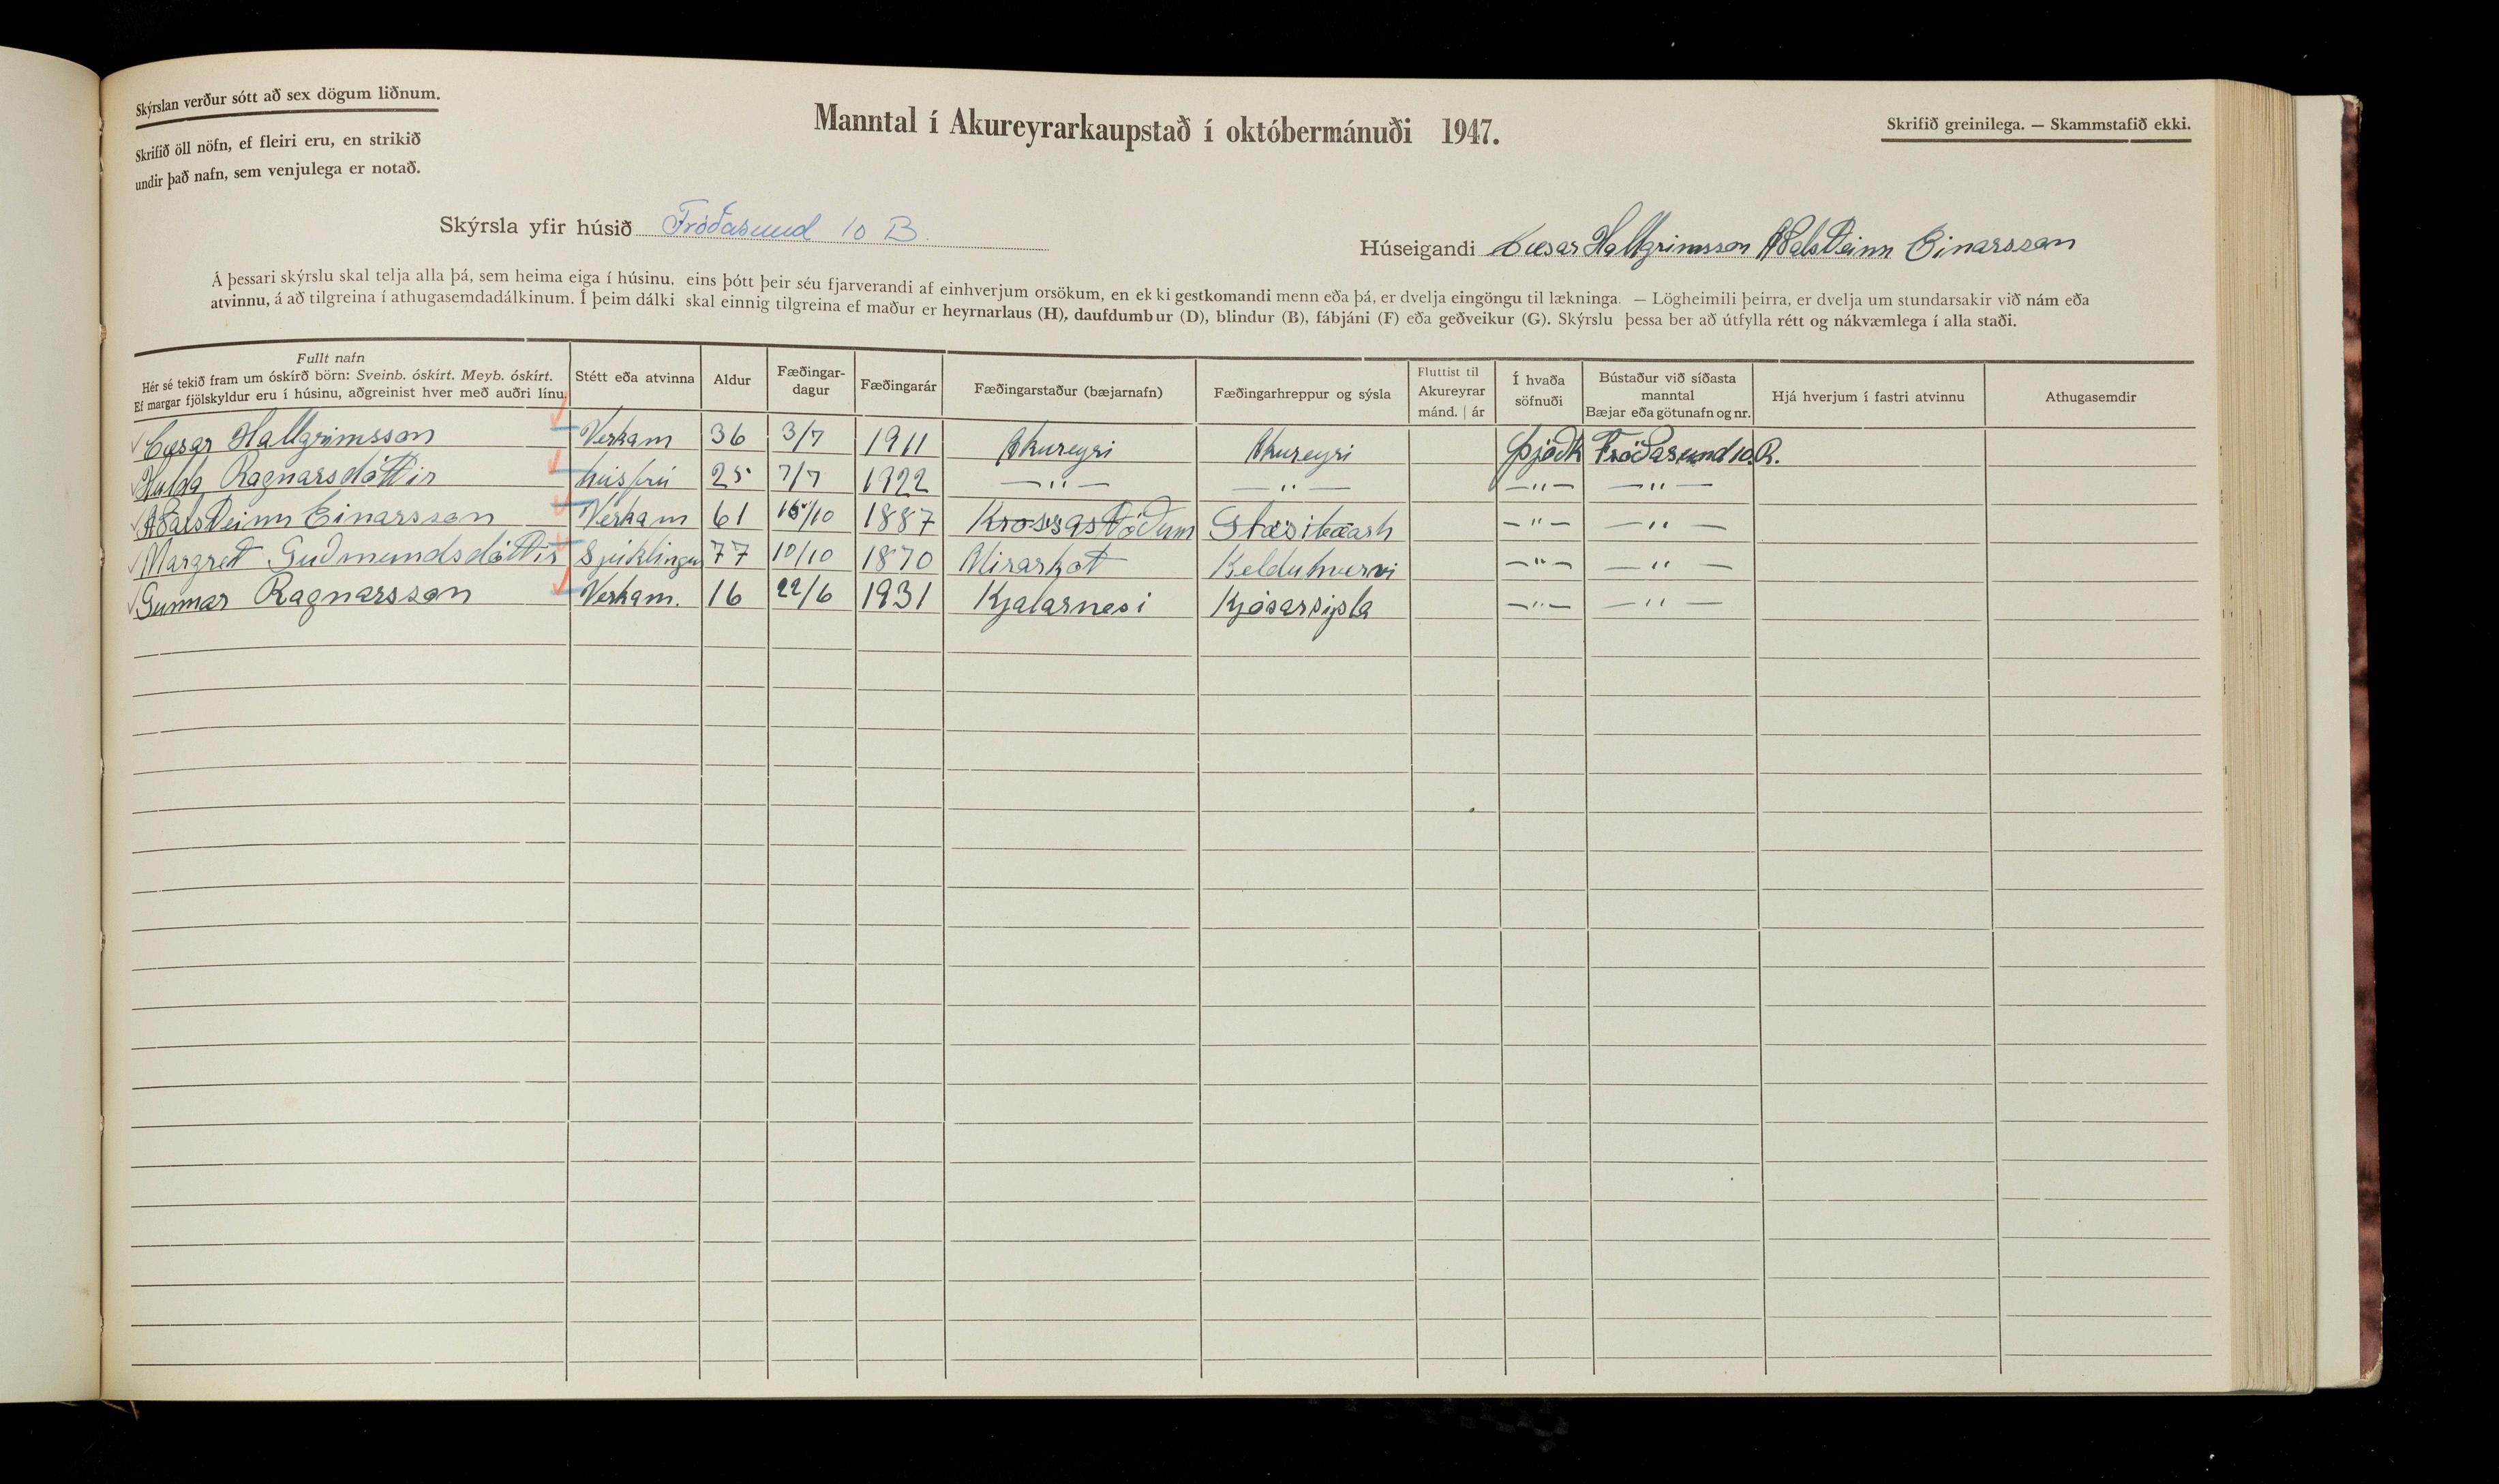 Skýrslan verður sótt að sex dögum liðnum.
Skrifið öll nöfn, ef fleiri eru, en strikið
undir það nafn, sem venjulega er notað.
Manntal í Akureyrarkaupstað í októbermánuði 1947.
Skrifið greinilega. — Skammstafið ekki.
Skýrsla yfir húsið Fróðasund 10 B.
Húseigandi Cæsar Hallgrimsson Aðalsteinn Einarsson
Á þessari skýrslu skal telja alla þá, sem heima eiga í húsinu, eins þótt þeir séu fjarverandi af einhverjum orsökum, en ekki gestkomandi menn eða þá, er dvelja eingöngu til lækninga. — Lögheimili þeirra, er dvelja um stundarsakir við nám eða
atvinnu, á að tilgreina í athugasemdadálkinum. Í þeim dálki skal einnig tilgreina ef maður er heyrnarlaus (H), daufdumbur (D), blindur (B), fábjáni (F) eða geðveikur (G). Skýrslu þessa ber að útfylla rétt og nákvæmlega í alla staði.
Fullt nafn
Hér sé tekið fram um óskírð börn: Sveinb. óskírt. Meyb. óskírt.
Ef margar fjölskyldur eru í húsinu, aðgreinist hver með auðri línu.
Stétt eða atvinna
Aldur
Fæðingar-
dagur
Fæðingarár
Fæðingarstaður (bæjarnafn)
Fæðingarhreppur og sýsla
Fluttist til
Akureyrar
mánd. | ár
Í hvaða
söfnuði
Bústaður við síðasta
manntal
Bæjar eða götunafn og nr.
Hjá hverjum í fastri atvinnu
Athugasemdir
Cæsar Hallgrimsson Verkam 36 3/7 1911 Akureyri Akureyri Þjóðk Fróðasund 10.B.
Hulda Ragnarsdóttir húsfrú 25 7/7 1922 —"— —"— —"— —"—
Aðalsteinn Einarsson Verkam 61 16/10 1887 Krossastöðum —"— —"—
Margret Guðmundsdóttir Sjúklingur 77 10/10 1870 Kelduhvervi —"— —"—
Gunnar Ragnarsson Verkam. 16 22/6 1931 Kjalarnesi Kjósarsýsla —"— —"—